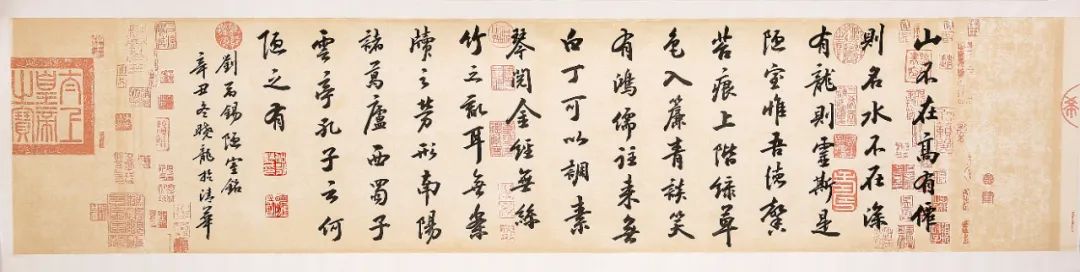 山不在高有僊
則名水不在深
有龍則靈斯是
陋室惟吾德馨
苔痕上階綠草
色入簾青談笑
有鴻儒往來無
白丁可以調素
琴閱金經無絲
竹之亂耳無案
牘之勞形南陽
諸葛廬西蜀子
雲亭孔子云何
陋之有
劉禹錫陋室銘
辛丑冬曉龍於清華
太上皇帝之寶